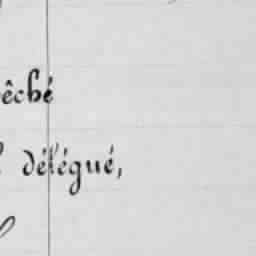 êché
délégué,